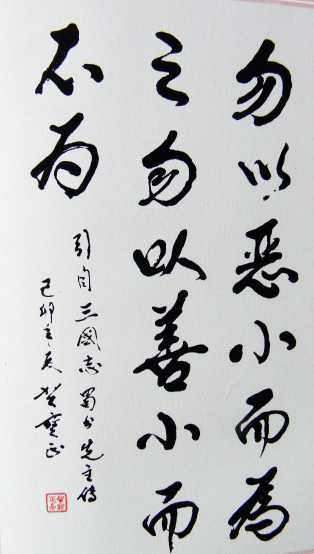 勿以恶小而為
之勿以善小而
不为
引自三國志蜀书先主传
己卯之夏